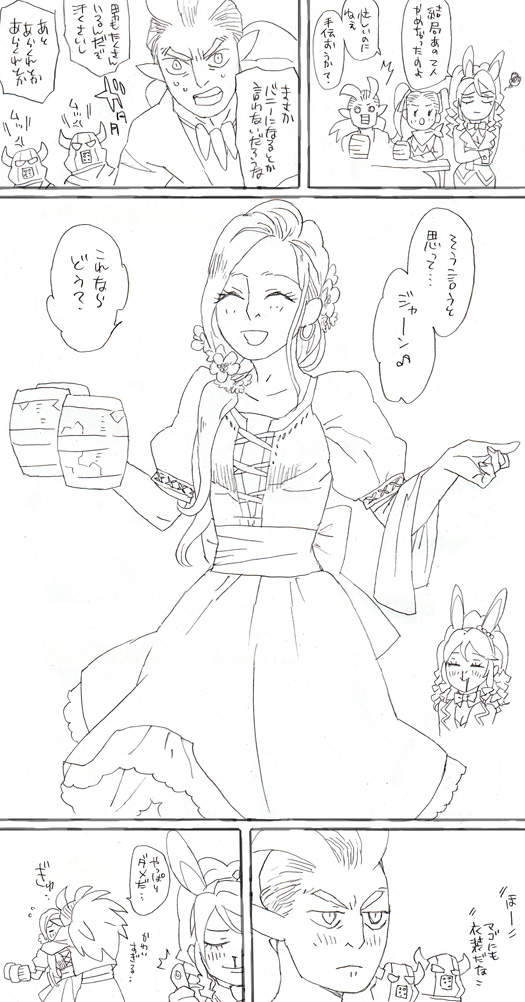 結局あの人
やめなかったのよ
忙しいのに
ねえ
手伝おうかて?
まさか
バニーになるとか
言わないだろうな
男もたくさん
いるんだぞ
汗くさい
あと
あらくれとか
あらくれとか
ムッ
ムッ
そう言うと
思って…
ジャーン♪
これなら
どう?
ほー
マジにも
衣装だな
やっぱり
ダメだ…
かわい
すぎる…
ぎゅ…